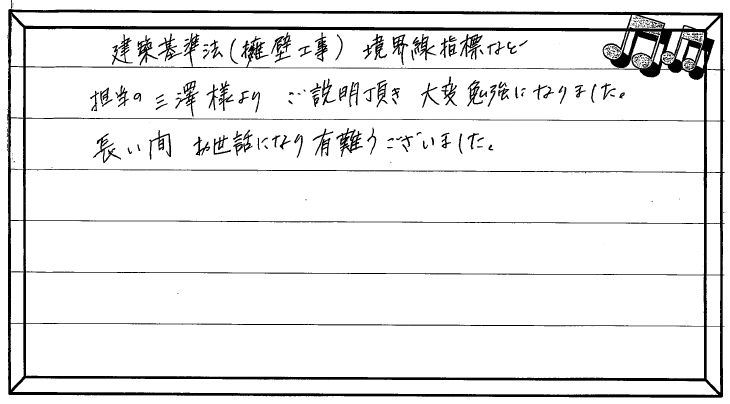 建築基準法(擁壁工事) 境界線指標など
担当の三澤様より ご説明頂き 大変勉強になりました。
長い間 お世話になり有難うございました。